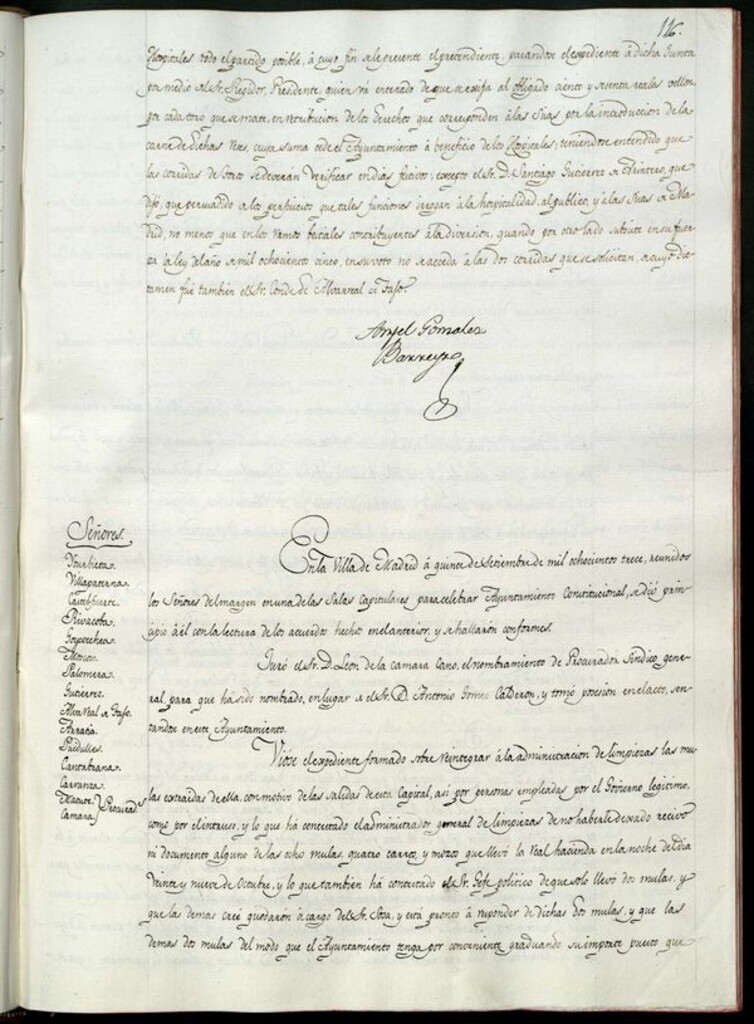 116.
Hospitales todo el partido posible, á cuyo fin se le presente el pretendiente, pasandose el expediente á dicha Junta
por medio del Sr. Regidor, Presidente, quien vá enterado de que se exija al obligado ciento y sesenta reales vellon
por cada toro que se mate, en retribucion de los derechos que corresponden á las Sisas por la introduccion de la
carne de dichas reses, cuya suma cede el Ayuntamiento á beneficio de los Hospitales; teniendose entendido que
las corridas de Toros se deverán verificar en dias festivos; excepto el Sr. D. Santiago Gutierrez de Arintero, que
dijo, que persuadido de los perjuicios que tales funciones irrogan á la hospitalidad, al publico, y á las Sisas de Ma-
drid, no menos que en los ramos feciales contribuyentes á la diversion, quando por otro lado subsiste en su fuer-
za la ley del año de mil ochocientos cinco, en su voto no se acceda á las dos corridas que se solicitan, á cuyo dic-
tamen fué tambien el Sr. Conde de Alvarreal de Tajo.
Angel Gonzalez
Barreyro
Señores.
Yturbieta.
Villapaterna.
Castelfuerte.
Rivacoba.
Goycoechea.
Palomera.
Gutierrez.
Alva Real de Tajo.
Arratia.
Cantabrana.
Carranza.
Camara. Procurads.
En la Villa de Madrid á quince de Setiembre de mil ochocientos trece, reunidos
los Señores del margen en una de las Salas Capitulares para celebrar Ayuntamiento Constitucional, se dió prin-
cipio á él con la lectura de los acuerdos hechos en el anterior, y se hallarón conformes.
Juró el Sr. D. Leon de la camara Cano, el nombramiento de Procurador Sindico gene-
ral, para que há sido nombrado, en lugar de el Sr. D. Antonio Gomez Calderon, y tomó posesion en el acto, sen-
tandose en este Ayuntamiento.
Vióse el expediente formado sobre reintegrar á la administracion de limpiezas las mu-
las extraidas de ella, con motivo de las salidas de esta Capital, asi por personas empleadas por el Govierno legitimo,
como por el intruso, y lo que há contestado el administrador general de limpiezas de no haberle dexado recivo
ni documento alguno de las ocho mulas, quatro carros, y mozos que llevó la Real hacienda en la noche del dia
veinte y nueve de Octubre, y lo que tambien há contestado el Sr. Gefe politico de que solo llevó dos mulas, y
que las demas creé quedarón á cargo del Sr. Sosa, y está pronto á reponer de dichas dos mulas, y que las
demas dos mulas del modo que el Ayuntamiento tenga por conveniente graduando su importe puesto que